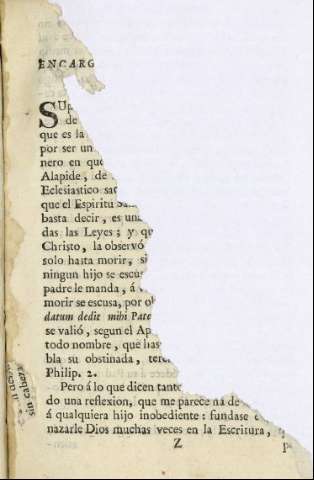 ENCARG
SUp
de
que es la
por ser un
nero en que
Alapide, de
Eclesiastico sac
que el Espiritu San
basta decir, es una
das las Leyes; y qu
Christo, la observó
solo hasta morir, si
ningun hijo se escus
padre le manda, á
morir se escusa, por ob
datum dedit mihi Pate
se valió, segun el Ap
todo nombre, que has
bla su obstinada, terc
Philip. 2.
Pero á lo que dicen tante
do una reflexion, que me parece na de
á qualquiera hijo inobediente: fundase
nazarle Dios muchas veces en la Escritura,
Z
sin cabeza